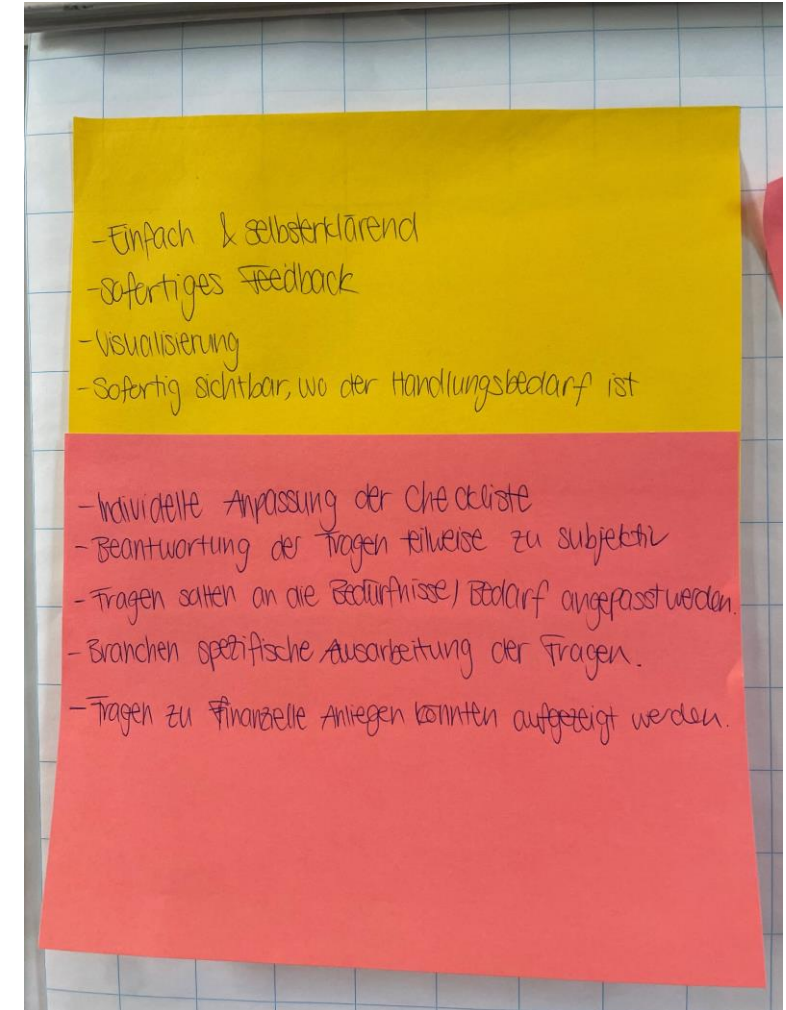 - Einfach & selbsterklärend
- sofortiges Feedback
- Visualisierung
- Sofortig sichtbar, wo der Handlungsbedarf ist
- Individelle Anpassung der Checkliste
- Beantwortung der Fragen teilweise zu subjektiv
- Fragen sollten an die Bedürfnisse/Bedarf angepasst werden.
- Branchen spezifische Ausarbeitung der Fragen.
- Fragen zu Finanzielle Anliegen könnten aufgezeigt werden.